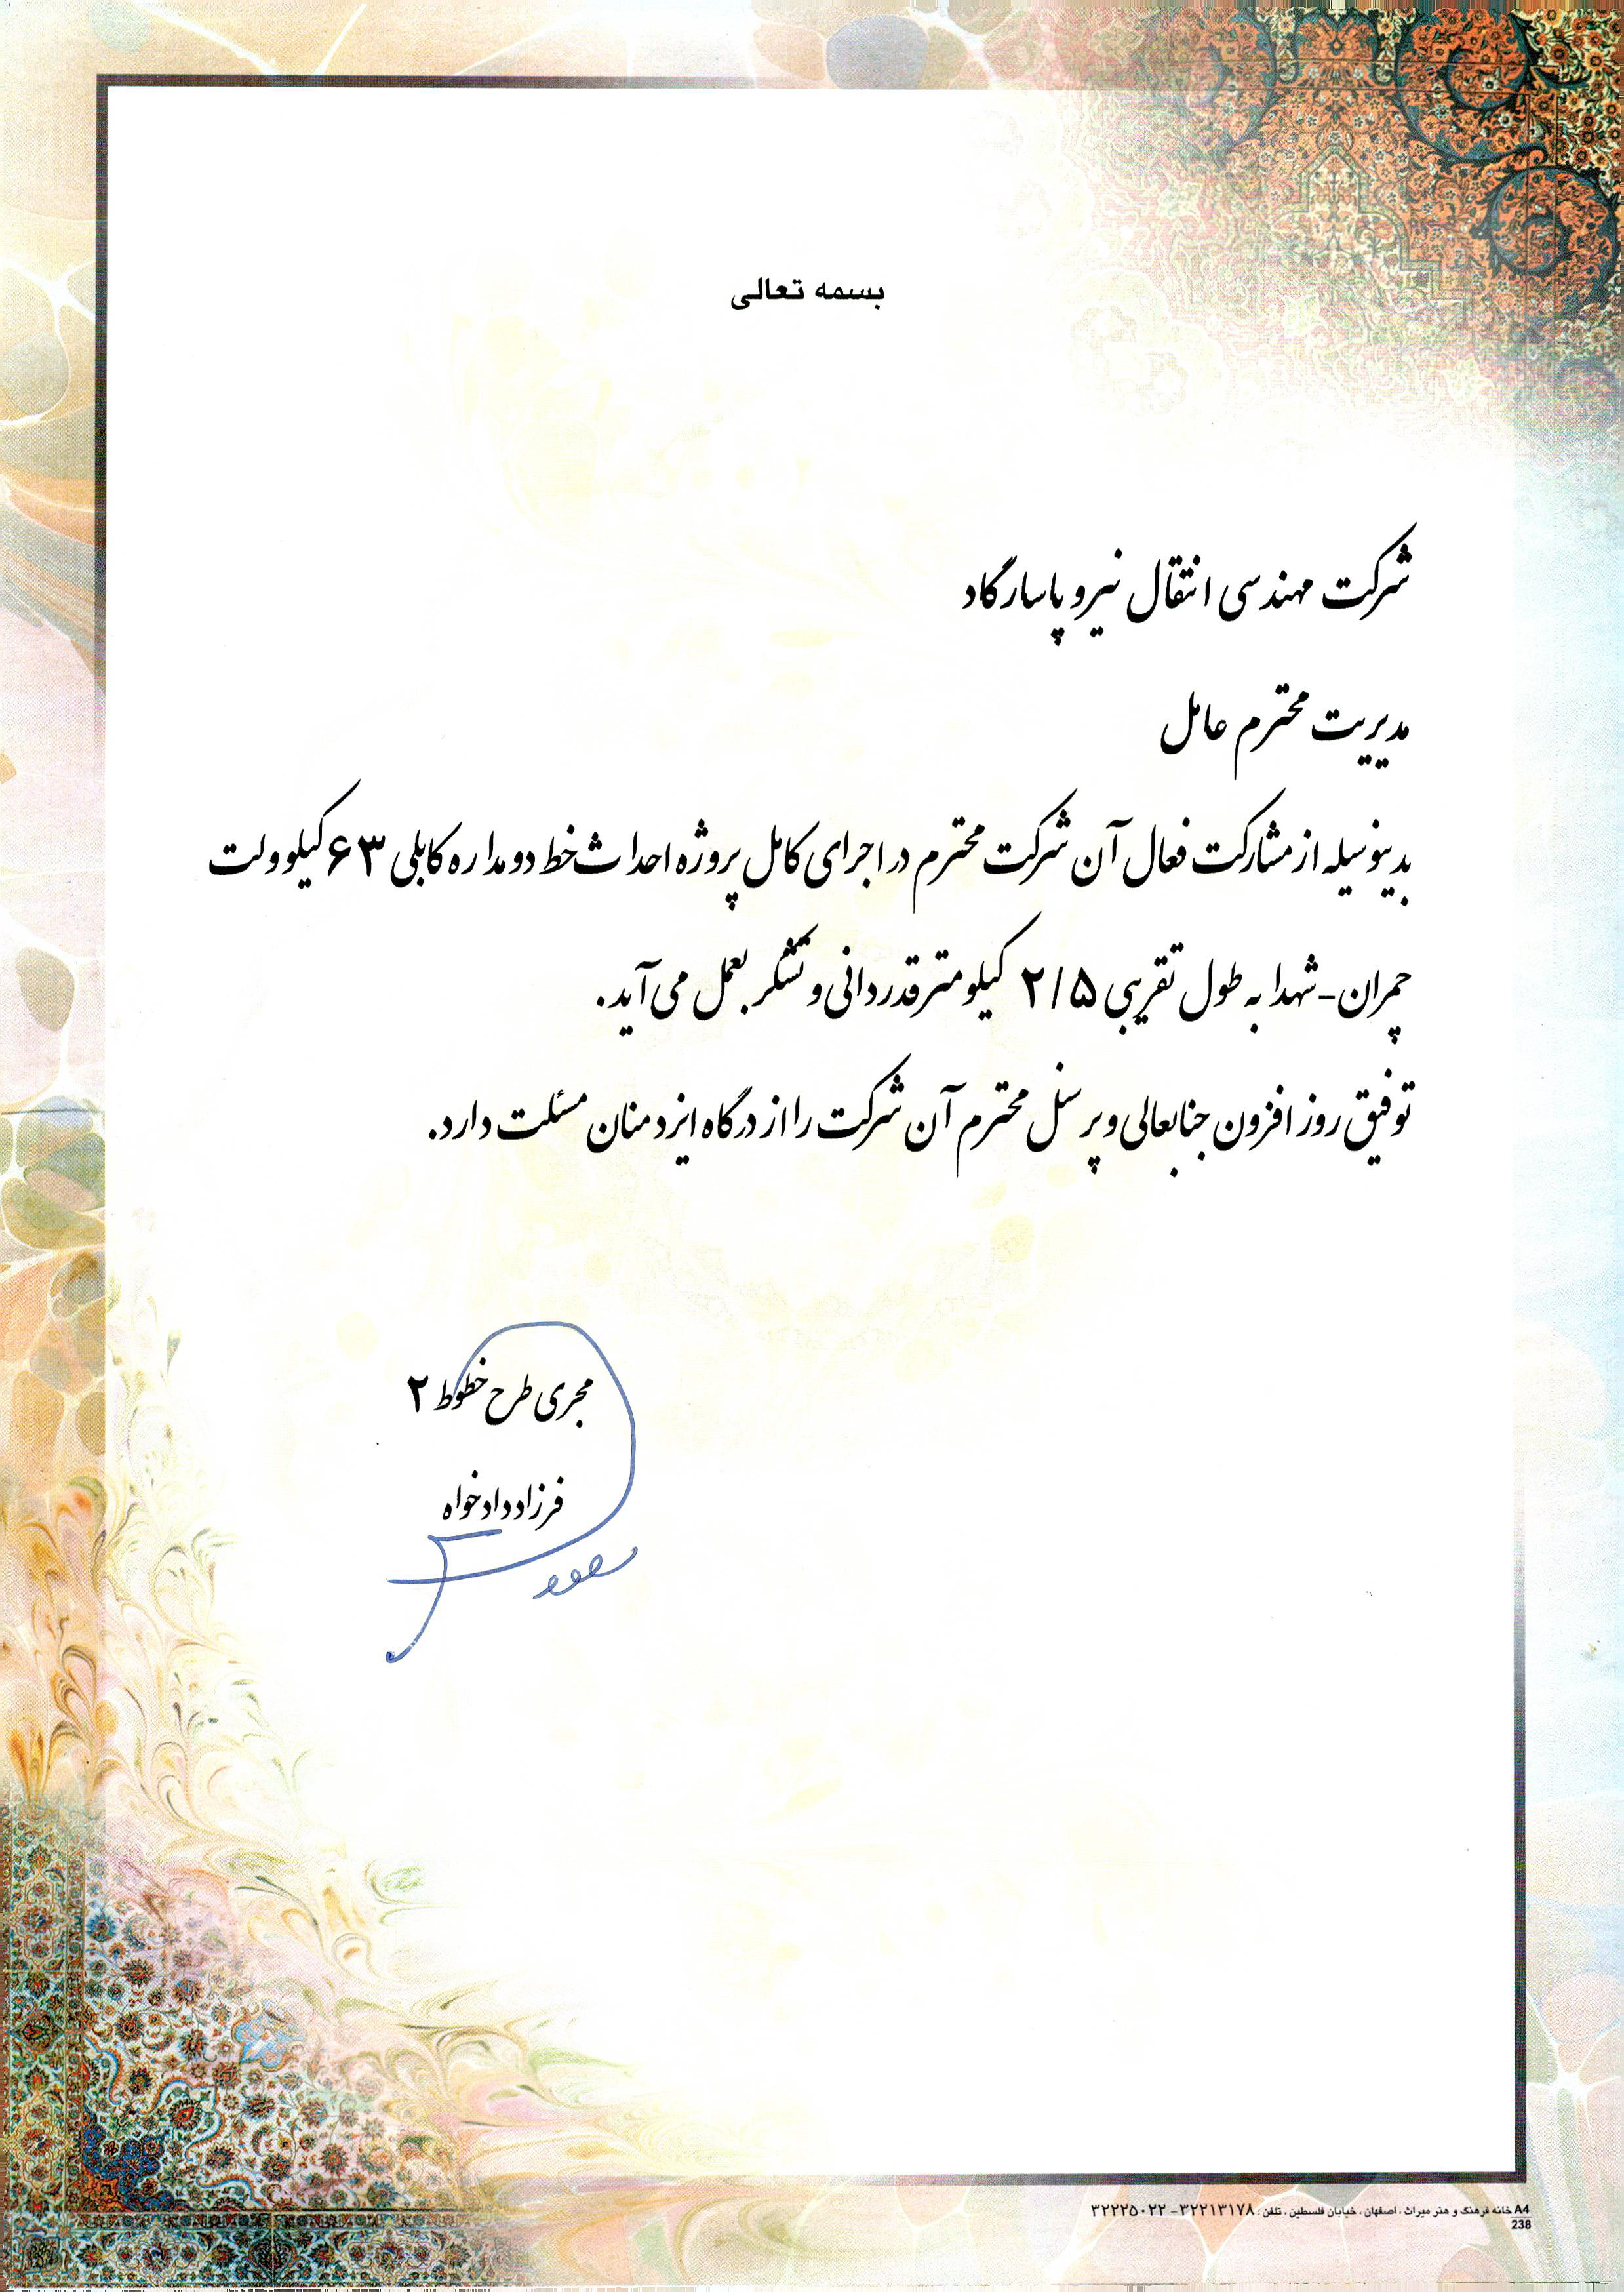 بسمه تعالی
شرکت مهندسی انتقال نیرو پاسارگاد
مدیریت محترم عامل
بدینوسیله از مشارکت فعال آن شرکت محترم در اجرای کامل پروژه احداث خط دو مداره کابلی ۶۳ کیلوولت
چمران-شهدا به طول تقریبی ۲/۵ کیلومتر قدردانی و تشکر بعمل می آید.
توفیق روز افزون جنابعالی و پرسنل محترم آن شرکت را از درگاه ایزد منان مسئلت دارد.
مجری طرح خطوط ۲
فرزاد دادخواه
A4 خانه فرهنگ و هنر میراث . اصفهان . خیابان فلسطین . تلفن : ۳۲۲۱۳۱۷۸ - ۳۲۲۲۵۰۲۲
238